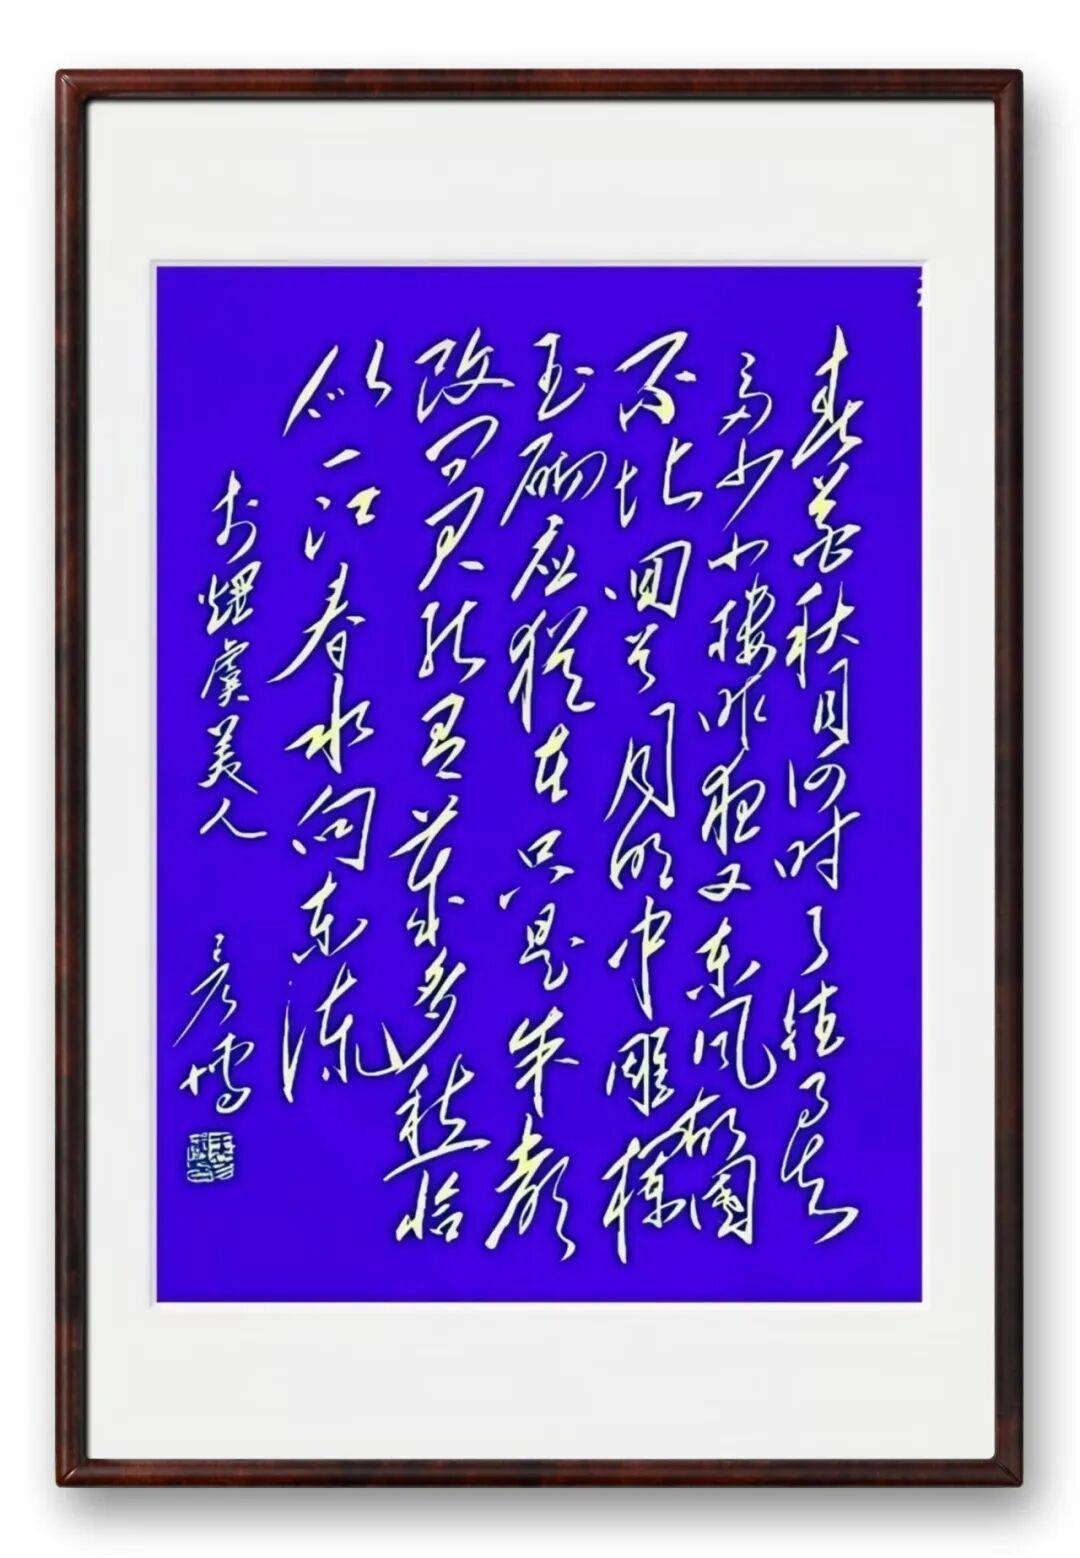 春花秋月何时了往事知
多少小楼昨夜又东风故国
不堪回首月明中雕栏
玉砌应犹在只是朱颜
改问君能有几多愁恰
似一江春水向东流
李煜虞美人
彦